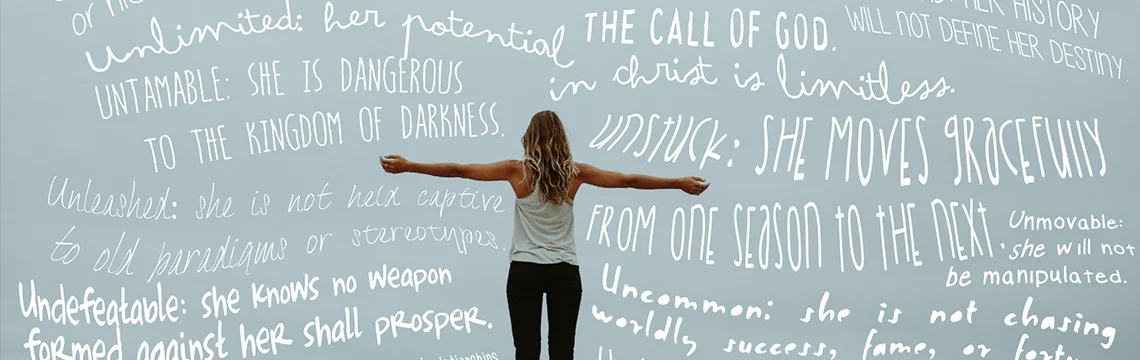 or
unlimited: her potential
in christ is limitless.
UNTAMABLE: SHE IS DANGEROUS
TO THE KINGDOM OF DARKNESS.
Unleashed: she is not held captive
to old paradigms or stereotypes.
Undefeatable: she knows no weapon
formed against her shall prosper.
THE CALL OF GOD.
HER HISTORY
WILL NOT DEFINE HER DESTINY.
UNSTUCK: SHE MOVES GRACEFULLY
FROM ONE SEASON TO THE NEXT.
Unmovable:
she will not
be manipulated.
Uncommon: she is not chasing
worldly success, fame, or